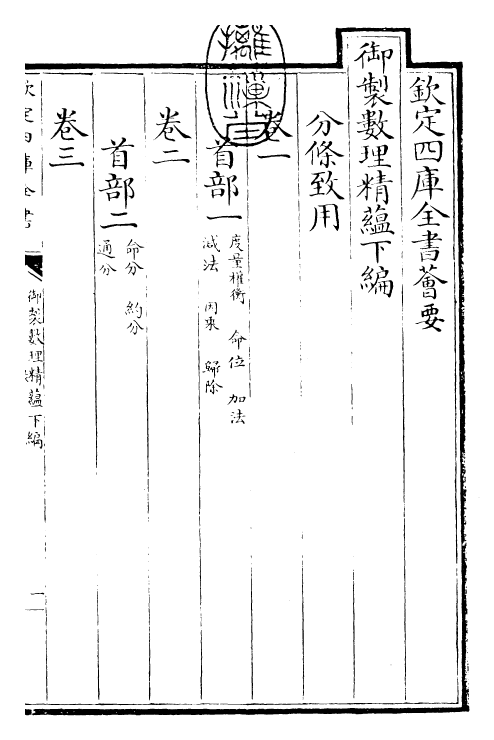 欽定四庫全書薈要
御製數理精藴下編
分條致用
卷一
首部一
度量權衡 命位 加法
減法 因乘 歸除
卷二
首部二
命分 約分
通分
卷三
欽定四庫全書
御製數理精藴下編